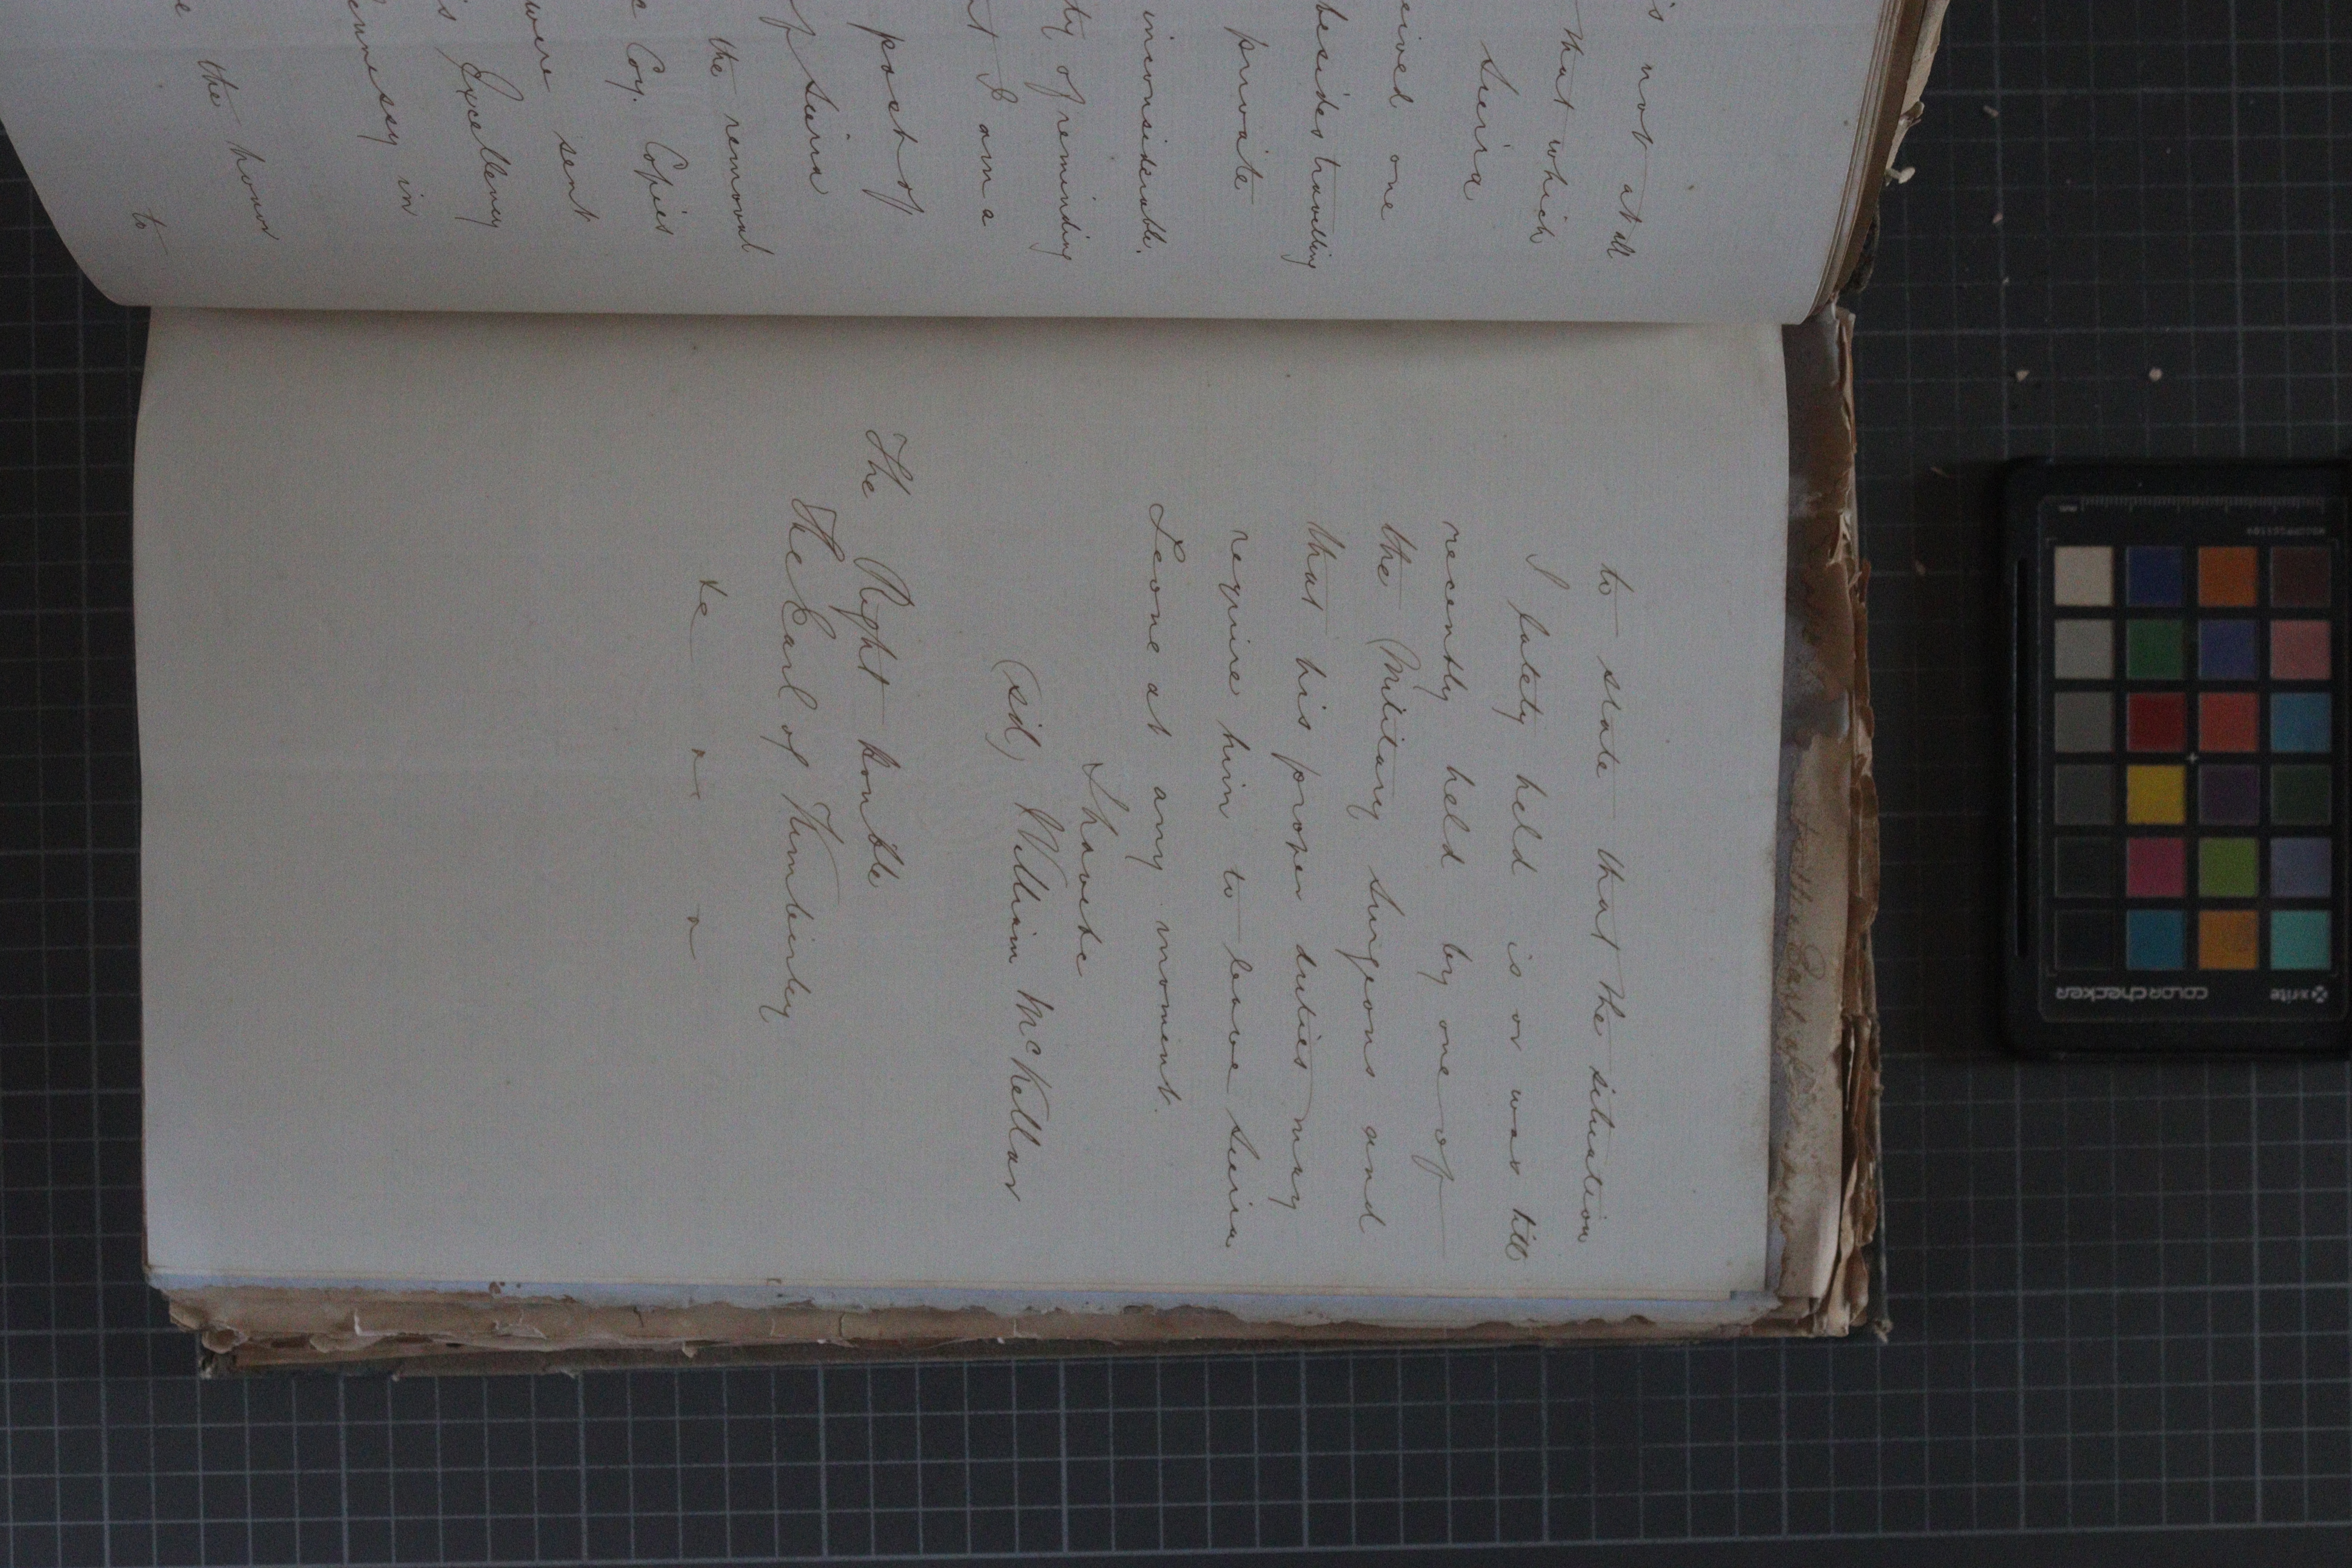 is not at all
that which
Seira
eived one
besides travelling
private
inconsiderable.
ty of reminding
at I am a
post of
of Seira
the removal
e Coy. Copies
were sent
is Excellency
ennessy in
e the honor
to
to state that the situation
I lately held is or was till
recently held by one of
the Military Surgeons and
that his proper duties may
require him to leave Seira
Leone at any moment.
I have &c
(sd) William McKellar
The Right Honble
The Earl of Kimberley
&c " "
colorchecker
x-rite